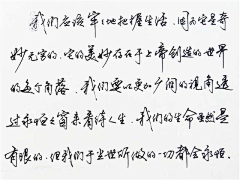 我们应该牢牢地把握生活，因为它是奇
妙无穷的，它的美妙存在于上帝创造的世界
的每个角落。我们要以更加广阔的视角透
过永恒之窗来看待人生，我们的生命虽然是
有限的，但我们于尘世所做的一切都会永恒。